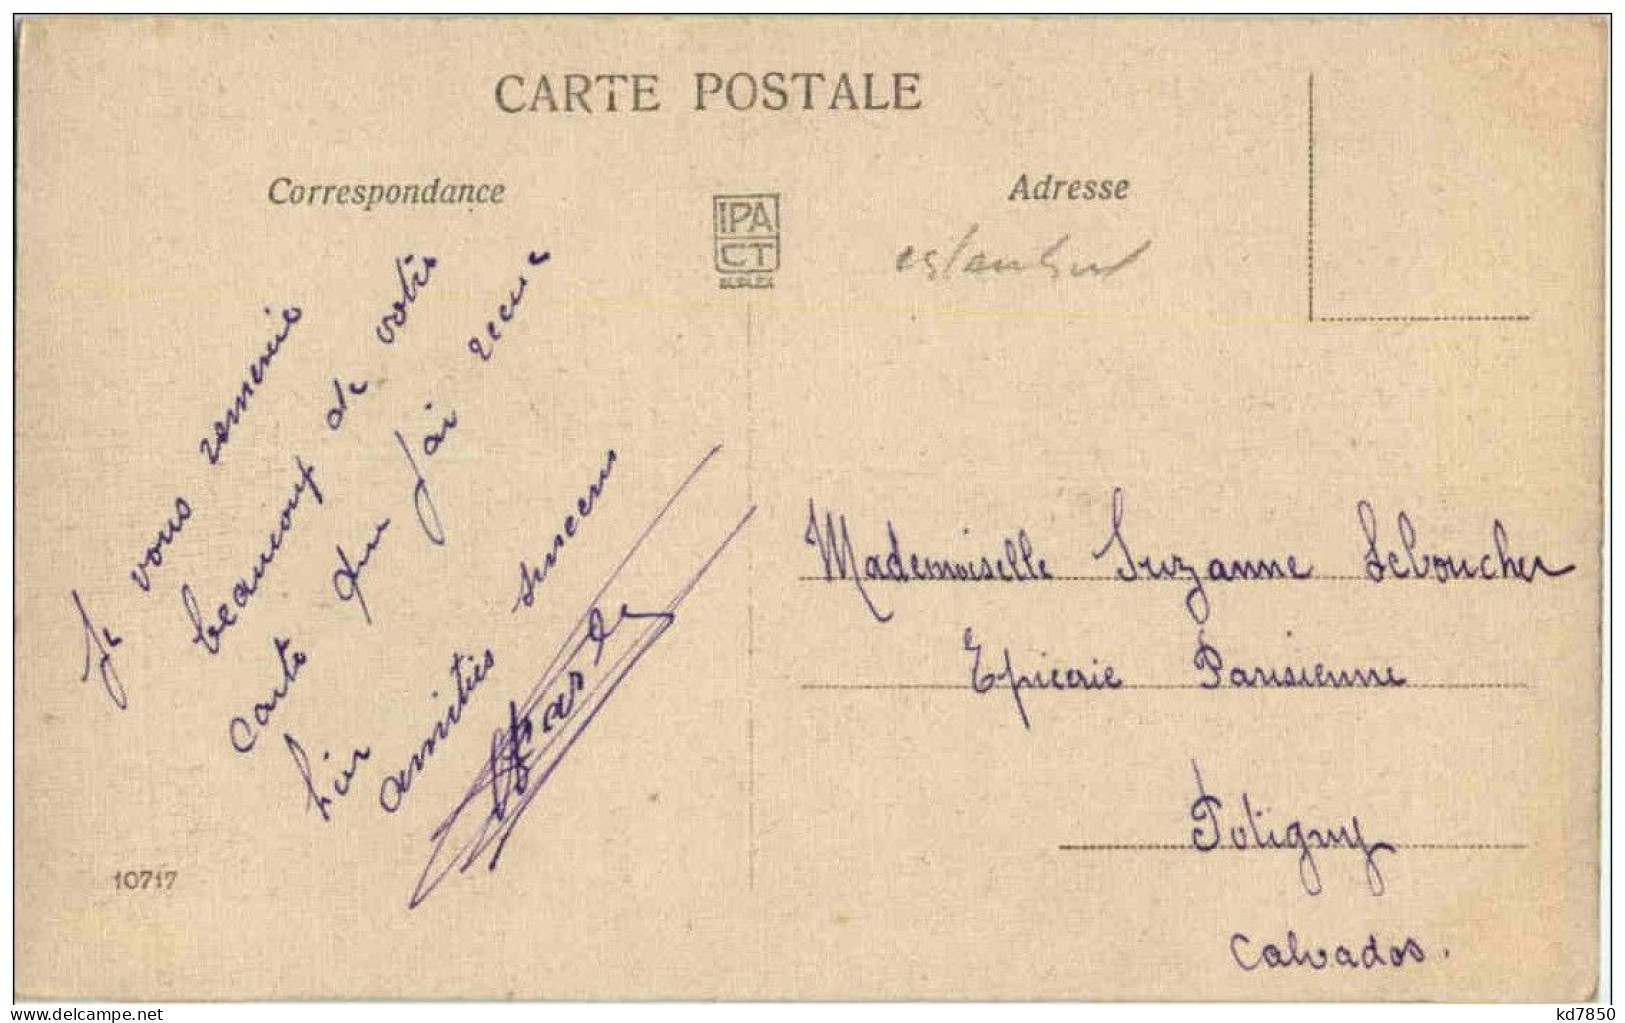 CARTE POSTALE
Correspondance
Adresse
IPA
CT
Je vous remercie
beaucoup de votre
carte que j'ai recue
hier
amities sinceres
Mademoiselle Suzanne Leboucher
Epicerie Parisienne
Potigny
Calvados.
10717
delcampe.net
kd7850